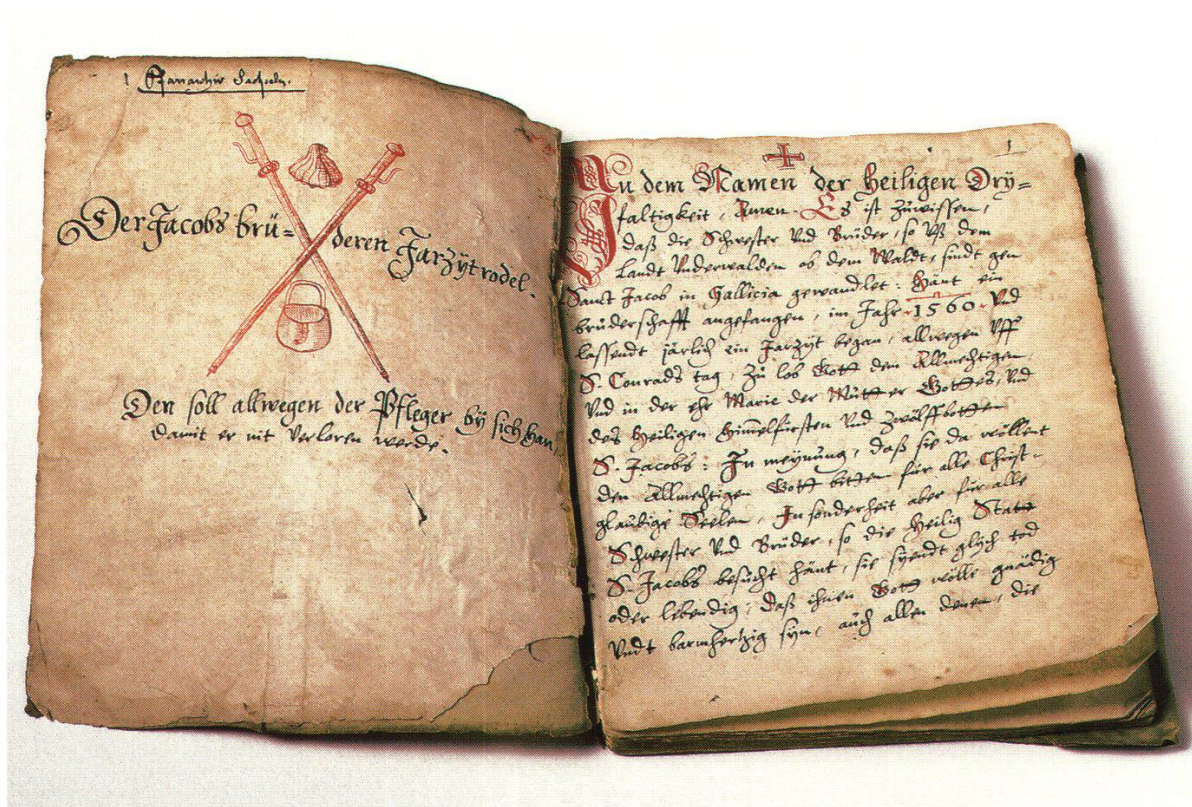 1 Pfarrarchiv Sachseln.
Der Jacobs brü= deren Jarzÿtrodel.
Den soll allwegen der Pfleger bÿ sich han,
damit er nit verloren werde.
1
In dem Namen der Heiligen Drÿ=
faltigkeit, Amen. Es ist zůwissen,
daß die Schwester vnd Brüder, so vß dem
Landt Vnderwalden ob dem Waldt, sindt gen
Sanct Jacob in Gallicia gewandlet: Hänt ein
brůderschafft angefangen, im Jahr 1560. vnd
lassendt järlich ein Jarzÿt began, allwegen vff
S. Conrads tag, zů lob Gott dem Allmechtigen,
vnd in der ehr Marie der Můtter Gottes, vnd
des heiligen Himelfürsten vnd zwölffbotten
S. Jacobs: In meÿnung, daß sie da wöllent
den Allmechtigen Gott bitten für alle Christ=
glaubige Seelen, In sonderheit aber für alle
Schwester vnd Brüder, so die Heilig Statt
S. Jacobs besůcht hänt, sie sÿendt glÿch tod
oder lebendig, daß ihnen Gott wölle gnädig
vndt barmhertzig sÿn, auch allen denen, die